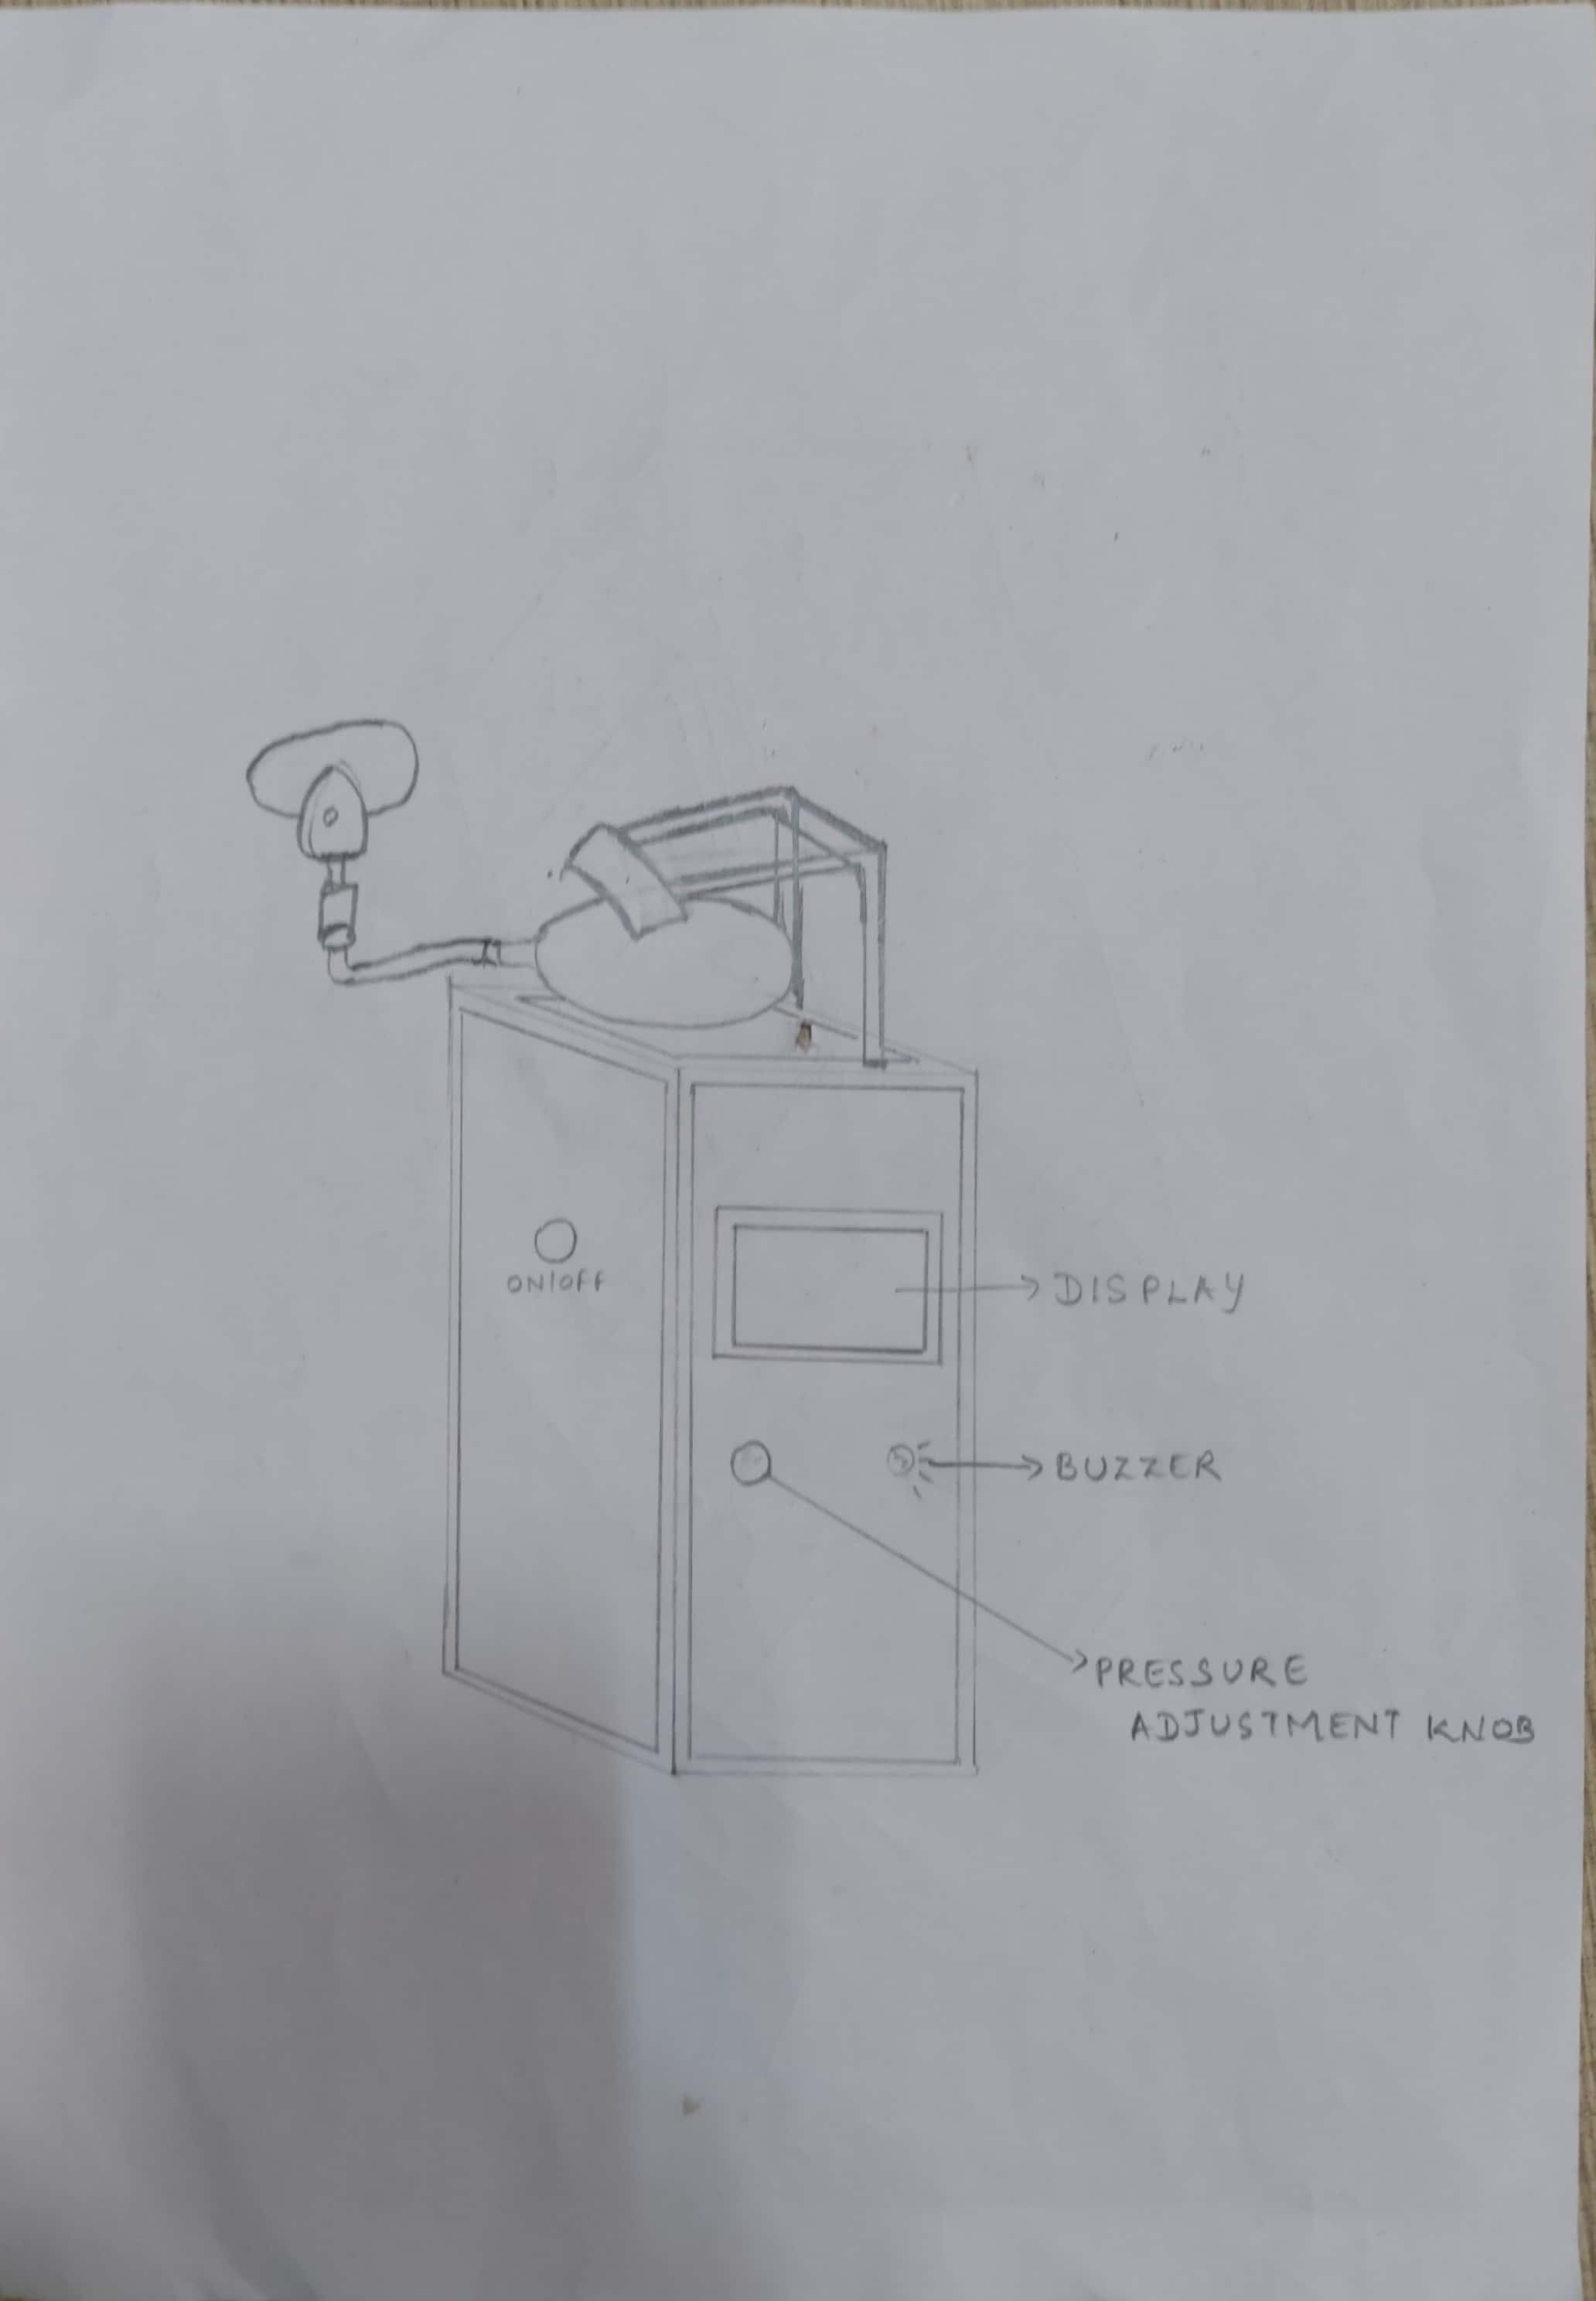 ON/OFF
DISPLAY
BUZZER
PRESSURE
ADJUSTMENT KNOB